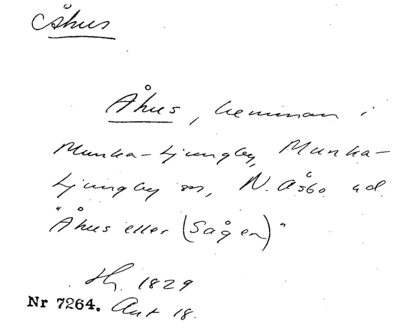 Åhus
Åhus, hemman i
Munka-Ljungby, Munka-
Ljungby sn, N. Åsbo hd.
"Åhus eller (Sågen)"
Hf. 1829
Nr 7264. Aut 18.